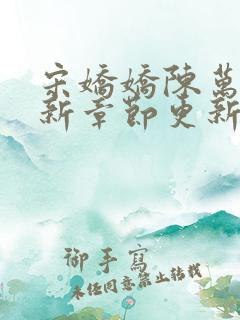 宋嬌嬌陳萬
新章節更新
御手寫
未經同意禁止轉載